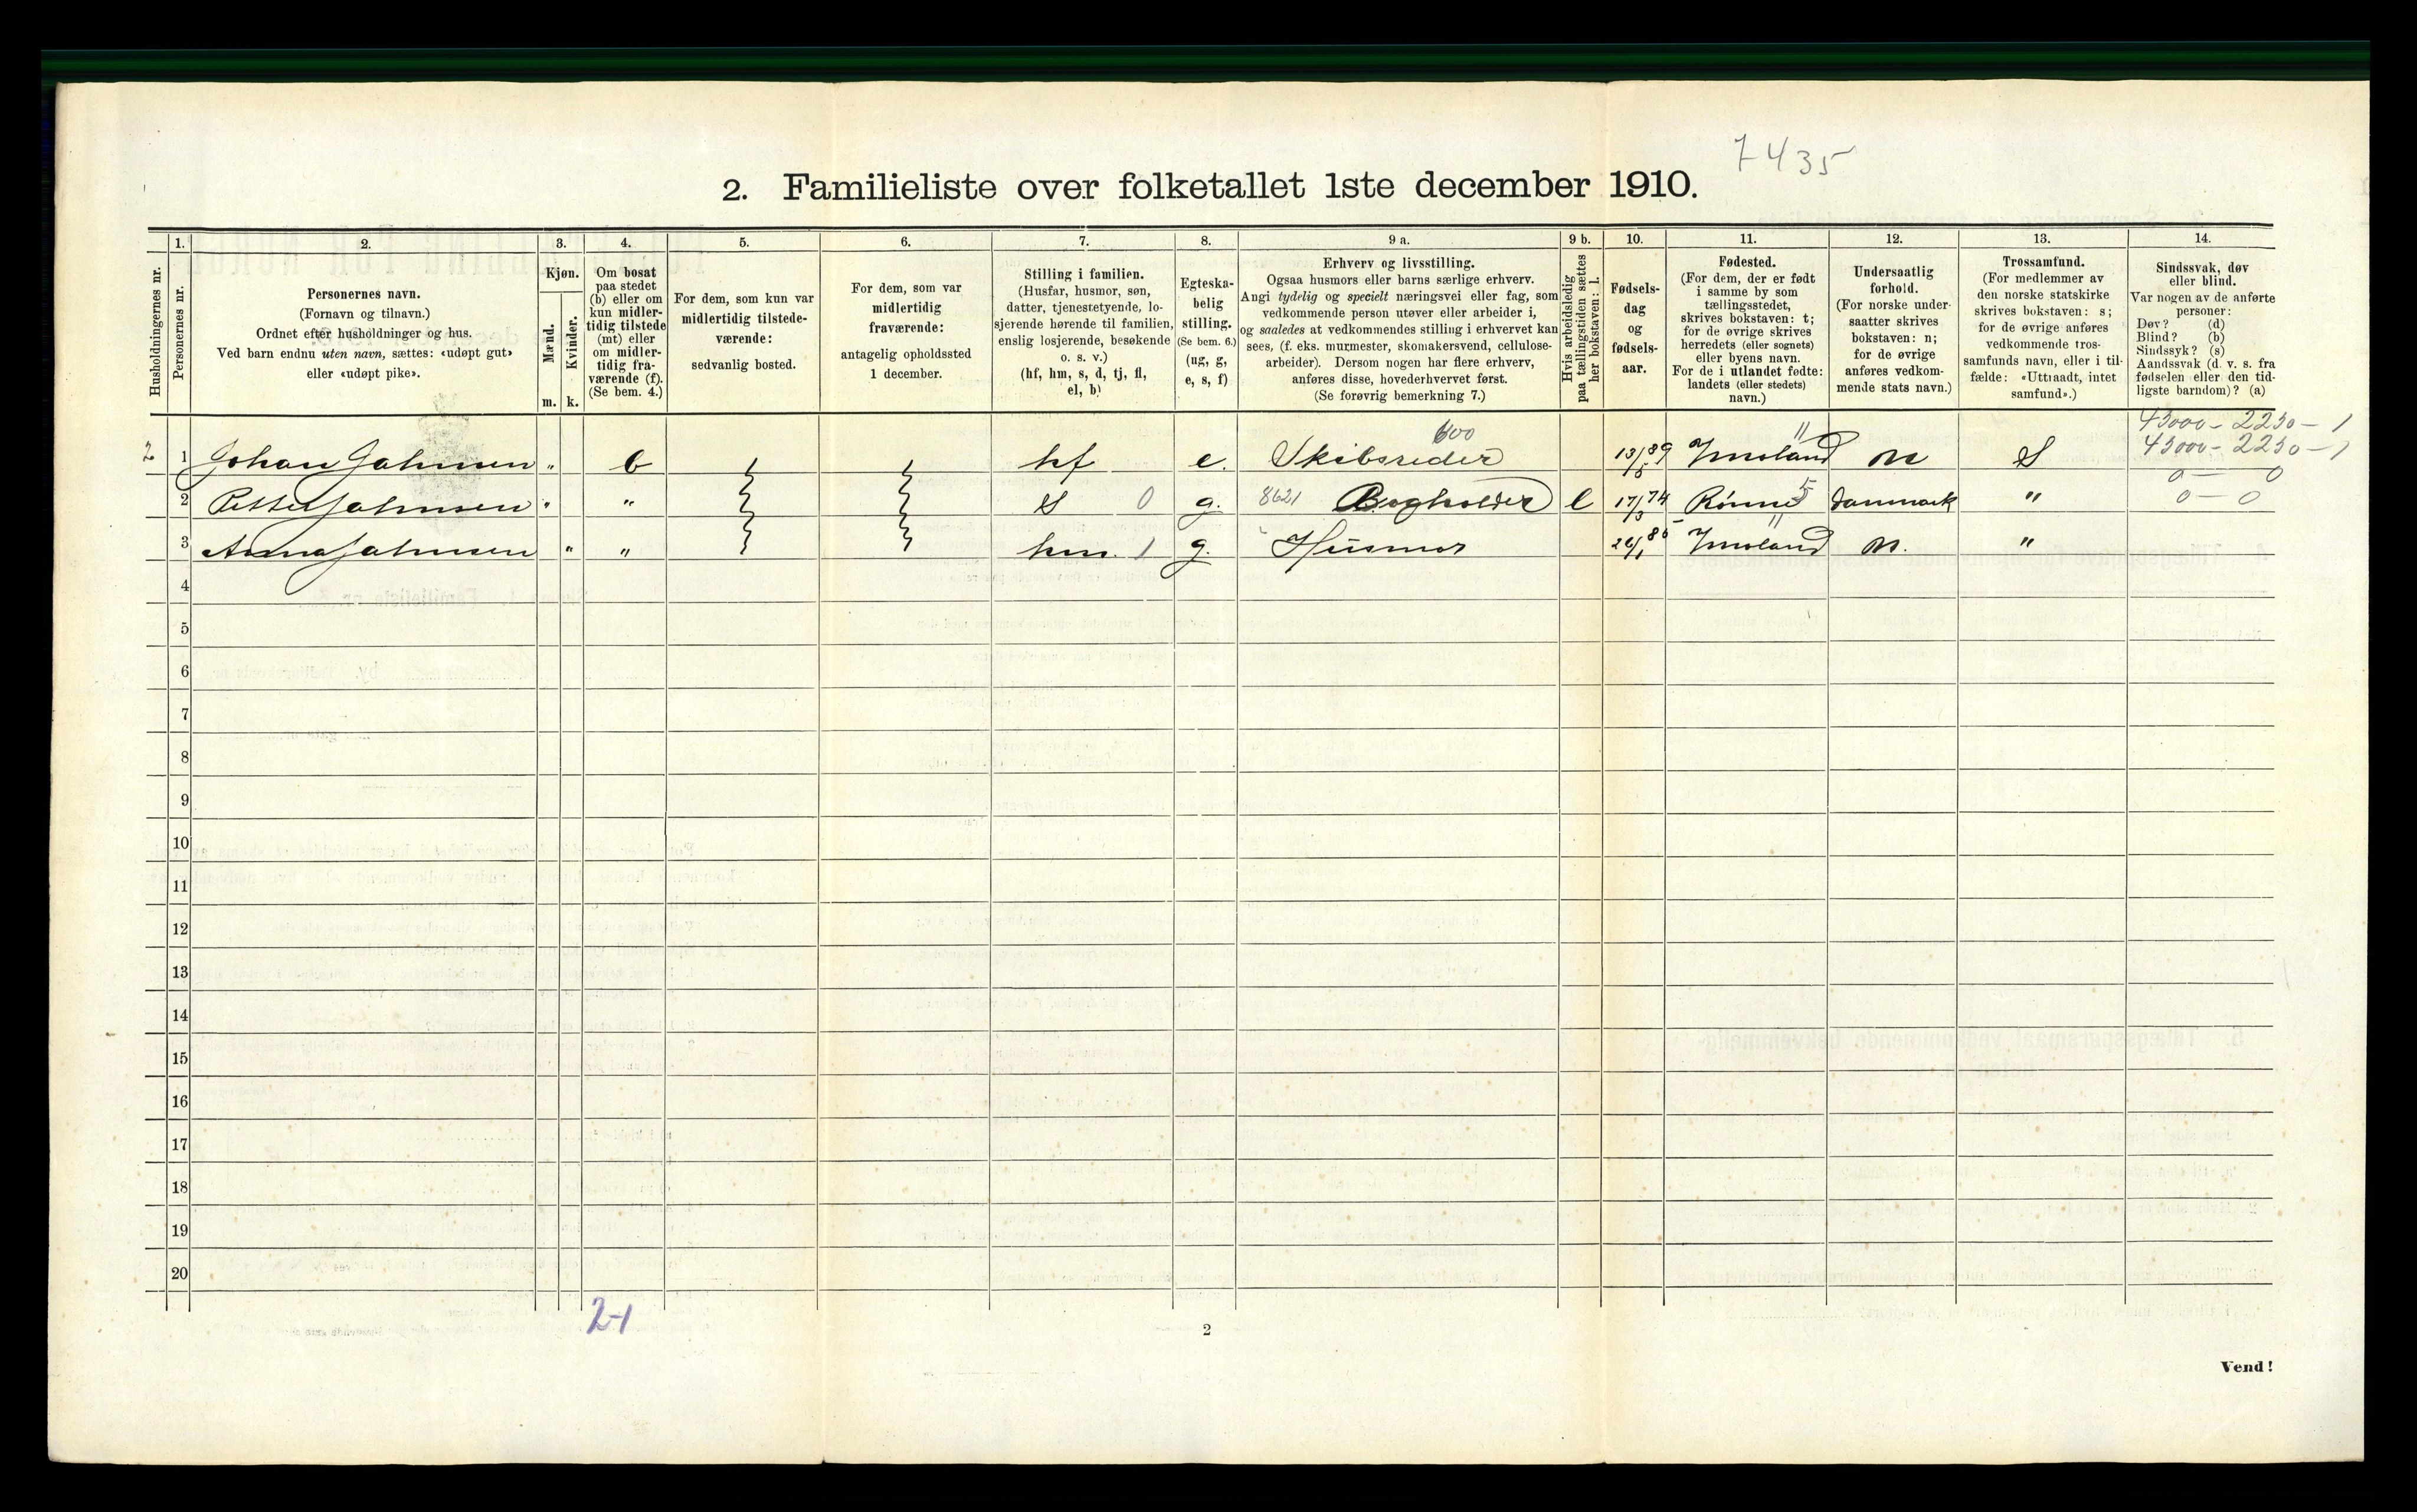 7435
2. Familieliste over folketallet 1ste december 1910.
Husholdningernes nr.
1.
Personernes nr.
2.
Personernes navn.
(Fornavn og tilnavn.)
Ordnet efter husholdninger og hus.
Ved barn endnu uten navn, sættes: «udøpt gut»
eller «udøpt pike».
3.
Kjøn.
Mænd.
Kvinder.
m. k.
4.
Om bosat
paa stedet
(b) eller om
kun midler-
tidig tilstede
(mt) eller
om midler-
tidig fra-
værende (f).
(Se bem. 4.)
5.
For dem, som kun var
midlertidig tilstede-
værende:
sedvanlig bosted.
6.
For dem, som var
midlertidig
fraværende:
antagelig opholdssted
1 december.
7.
Stilling i familien.
(Husfar, husmor, søn,
datter, tjenestetyende, lo-
sjerende hørende til familien,
enslig losjerende, besøkende
o. s. v.)
(hf, hm, s, d, tj, fl,
el, b)
8.
Egteska-
belig
stilling.
(Se bem. 6.)
(ug, g,
e, s, f)
9 a.
Erhverv og livsstilling.
Ogsaa husmors eller barns særlige erhverv.
Angi tydelig og specielt næringsvei eller fag, som
vedkommende person utøver eller arbeider i,
og saaledes at vedkommendes stilling i erhvervet kan
sees, (f. eks. murmester, skomakersvend, cellulose-
arbeider). Dersom nogen har flere erhverv,
anføres disse, hovederhvervet først.
(Se forøvrig bemerkning 7.)
9 b.
Hvis arbeidsledig
paa tællingstiden sættes
her bokstaven: l.
10.
Fødsels-
dag
og
fødsels-
aar.
11.
Fødested.
(For dem, der er født
i samme by som
tællingsstedet,
skrives bokstaven: t;
for de øvrige skrives
herredets (eller sognets)
eller byens navn.
For de i utlandet fødte:
landets (eller stedets)
navn.)
12.
Undersaatlig
forhold.
(For norske under-
saatter skrives
bokstaven: n;
for de øvrige
anføres vedkom-
mende stats navn.)
13.
Trossamfund.
(For medlemmer av
den norske statskirke
skrives bokstaven: s;
for de øvrige anføres
vedkommende tros-
samfunds navn, eller i til-
fælde: «Uttraadt, intet
samfund».)
14.
Sindssvak, døv
eller blind.
Var nogen av de anførte
personer:
Døv? (d)
Blind? (b)
Sindssyk? (s)
Aandssvak (d. v. s. fra
fødselen eller den tid-
ligste barndom)? (a)
45000 - 2250 - 1
2 1 Johan Jahnsen " b hf e. 600 Skibsreder 13/5 39 n S 45000 - 2250 - 1
0 - 0
2 Petter Jahnsen " " S 0 g. 8621 Bogholder l 17/3 74 Rønne 5 Danmark " 0 - 0
3 Anna Jahnsen " " hm. 1 g. Husmor n. "
4
5
6
7
8
9
10
11
12
13
14
15
16
17
18
19
20
2-1
2
Vend!